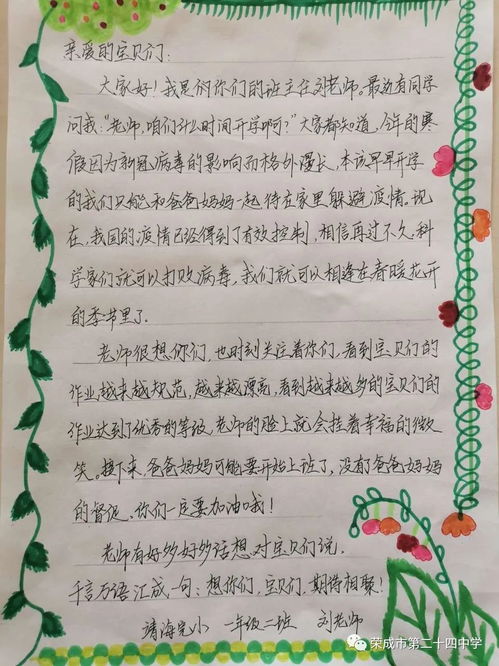 亲爱的宝贝们:
大家好!我是你们的班主任刘老师。最近有同学
问我:"老师,咱们什么时间开学啊?"大家都知道,今年的寒
假因为新冠病毒的影响而格外漫长,本该早早开学
的我们只能和爸爸妈妈一起待在家里躲避疫情。现
在,我国的疫情已经得到了有效控制,相信再过不久,科
学家们就可以打败病毒,我们就可以相逢在春暖花开
的季节里了.
老师很想你们,也时刻关注着你们,看到宝贝们的
作业越来越规范,越来越漂亮,看到越来越多的宝贝们的
作业达到了优秀的等级,老师的脸上就会挂着幸福的微
笑。接下来,爸爸妈妈可能要开始上班了,没有爸爸妈妈
的督促,你们一定要加油哦!
老师有好多好多话想对宝贝们说,
千言万语汇成一句:想你们,宝贝们,期待相聚!
靖海完小 一年级二班 刘老师
荣成市第二十四中学